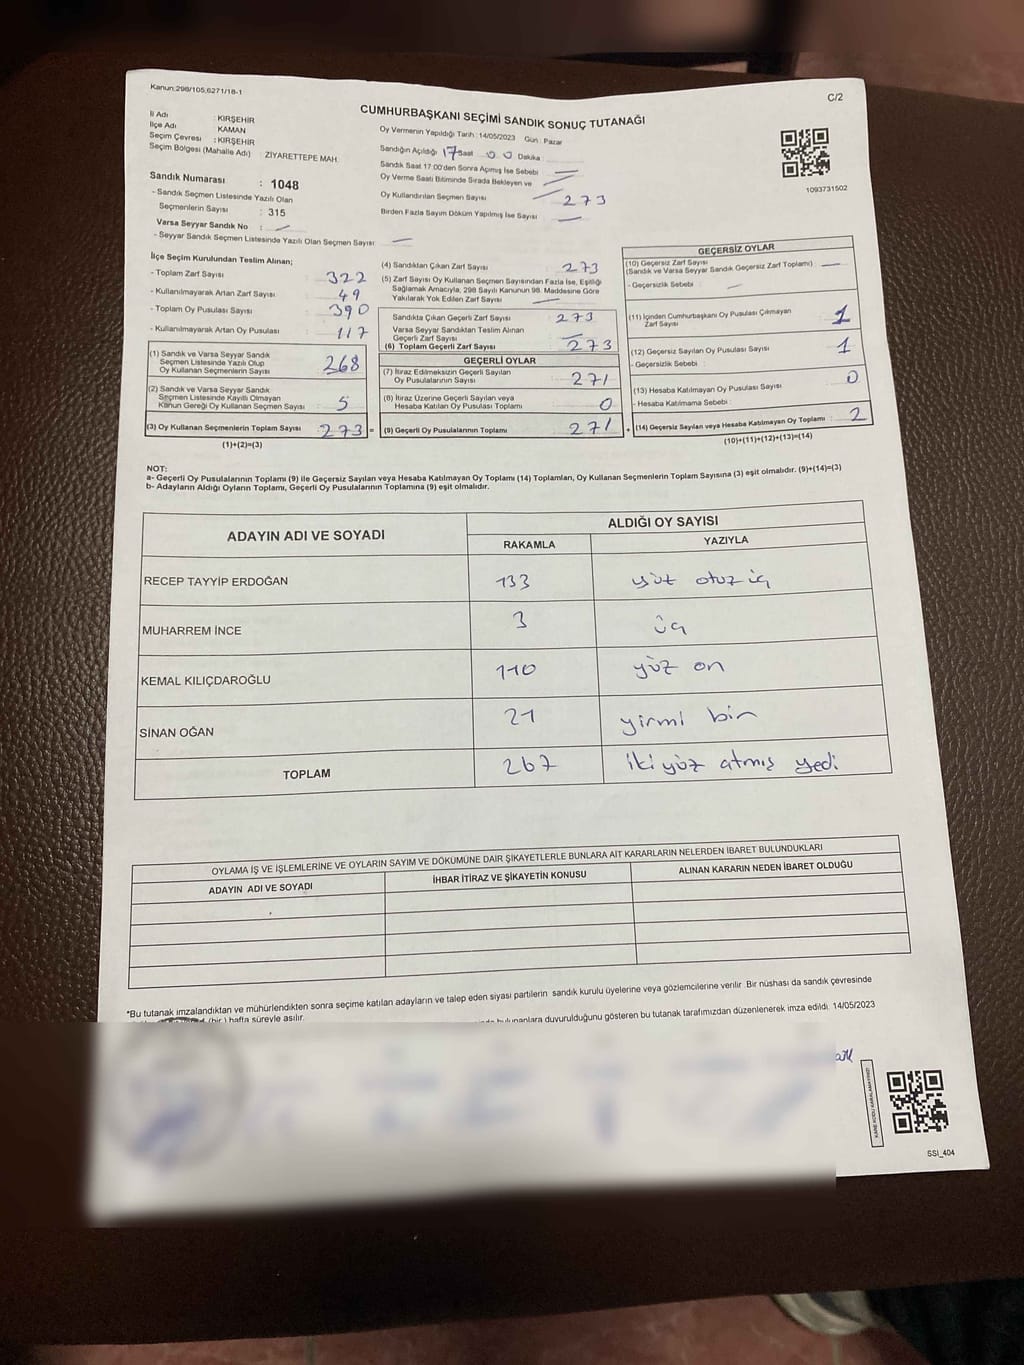 Kanun;298/105,6271/18-1
C/2
CUMHURBAŞKANI SEÇİMİ SANDIK SONUÇ TUTANAĞI
İl Adı : KIRŞEHİR
İlçe Adı KAMAN
Seçim Çevresi : KIRŞEHİR
Seçim Bölgesi (Mahalle Adı) : ZİYARETTEPE MAH.
Oy Vermenin Yapıldığı Tarih :14/05/2023 Gün : Pazar
Sandığın Açıldığı 17 Saat 00 Dakika :
Sandık Saat 17:00'den Sonra Açımış İse Sebebi
Oy Verme Saati Bitiminde Sırada Bekleyen ve
Oy Kullandırılan Seçmen Sayısı 273
Birden Fazla Sayım Döküm Yapılmış İse Sayısı
1093731502
Sandık Numarası : 1048
- Sandık Seçmen Listesinde Yazılı Olan
Seçmenlerin Sayısı : 315
Varsa Seyyar Sandık No :
- Seyyar Sandık Seçmen Listesinde Yazılı Olan Seçmen Sayısı
İlçe Seçim Kurulundan Teslim Alınan;
- Toplam Zarf Sayısı 322
- Kullanılmayarak Artan Zarf Sayısı 49
- Toplam Oy Pusulası Sayısı 390
- Kullanılmayarak Artan Oy Pusulası 117
(1) Sandık ve Varsa Seyyar Sandık
Seçmen Listesinde Yazılı Olup
Oy Kullanan Seçmenlerin Sayısı 268
(2) Sandık ve Varsa Seyyar Sandık
Seçmen Listesinde Kayıtlı Olmayan
Kanun Gereği Oy Kullanan Seçmen Sayısı 5
(3) Oy Kullanan Seçmenlerin Toplam Sayısı 273 =
(1)+(2)=(3)
(4) Sandıktan Çıkan Zarf Sayısı 273
(5) Zarf Sayısı Oy Kullanan Seçmen Sayısından Fazla İse, Eşitliği
Sağlamak Amacıyla, 298 Sayılı Kanunun 98. Maddesine Göre
Yakılarak Yok Edilen Zarf Sayısı
Sandıkta Çıkan Geçerli Zarf Sayısı 273
Varsa Seyyar Sandıktan Teslim Alınan
Geçerli Zarf Sayısı
(6) Toplam Geçerli Zarf Sayısı 273
GEÇERLİ OYLAR
(7) İtiraz Edilmeksizin Geçerli Sayılan
Oy Pusulalarının Sayısı 271
(8) İtiraz Üzerine Geçerli Sayılan veya
Hesaba Katılan Oy Pusulası Toplamı 0
(9) Geçerli Oy Pusulalarının Toplamı 271 +
GEÇERSİZ OYLAR
(10) Geçersiz Zarf Sayısı
(Sandık ve Varsa Seyyar Sandık Geçersiz Zarf Toplamı)
- Geçersizlik Sebebi :
(11) İçinden Cumhurbaşkanı Oy Pusulası Çıkmayan
Zarf Sayısı 1
(12) Geçersiz Sayılan Oy Pusulası Sayısı 1
- Geçersizlik Sebebi :
(13) Hesaba Katılmayan Oy Pusulası Sayısı 0
- Hesaba Katılmama Sebebi :
(14) Geçersiz Sayılan veya Hesaba Katılmayan Oy Toplamı : 2
(10)+(11)+(12)+(13)=(14)
NOT:
a- Geçerli Oy Pusulalarının Toplamı (9) ile Geçersiz Sayılan veya Hesaba Katılmayan Oy Toplamı (14) Toplamları, Oy Kullanan Seçmenlerin Toplam Sayısına (3) eşit olmalıdır. (9)+(14)=(3)
b- Adayların Aldığı Oyların Toplamı, Geçerli Oy Pusulalarının Toplamına (9) eşit olmalıdır.
ADAYIN ADI VE SOYADI
ALDIĞI OY SAYISI
RAKAMLA YAZIYLA
RECEP TAYYİP ERDOĞAN 133 yüz otuz üç
MUHARREM İNCE 3 üç
KEMAL KILIÇDAROĞLU 110 yüz on
SİNAN OĞAN 21 yirmi bir
TOPLAM 267 iki yüz atmış yedi
OYLAMA İŞ VE İŞLEMLERİNE VE OYLARIN SAYIM VE DÖKÜMÜNE DAİR ŞİKAYETLERLE BUNLARA AİT KARARLARIN NELERDEN İBARET BULUNDUKLARI
ADAYIN ADI VE SOYADI İHBAR İTİRAZ VE ŞİKAYETİN KONUSU ALINAN KARARIN NEDEN İBARET OLDUĞU
*Bu tutanak imzalandıktan ve mühürlendikten sonra seçime katılan adayların ve talep eden siyasi partilerin sandık kurulu üyelerine veya gözlemcilerine verilir. Bir nüshası da sandık çevresinde
(bir) hafta süreyle asılır.
bulunanlara duyurulduğunu gösteren bu tutanak tarafımızdan düzenlenerek imza edildi. 14/05/2023
SSI_404